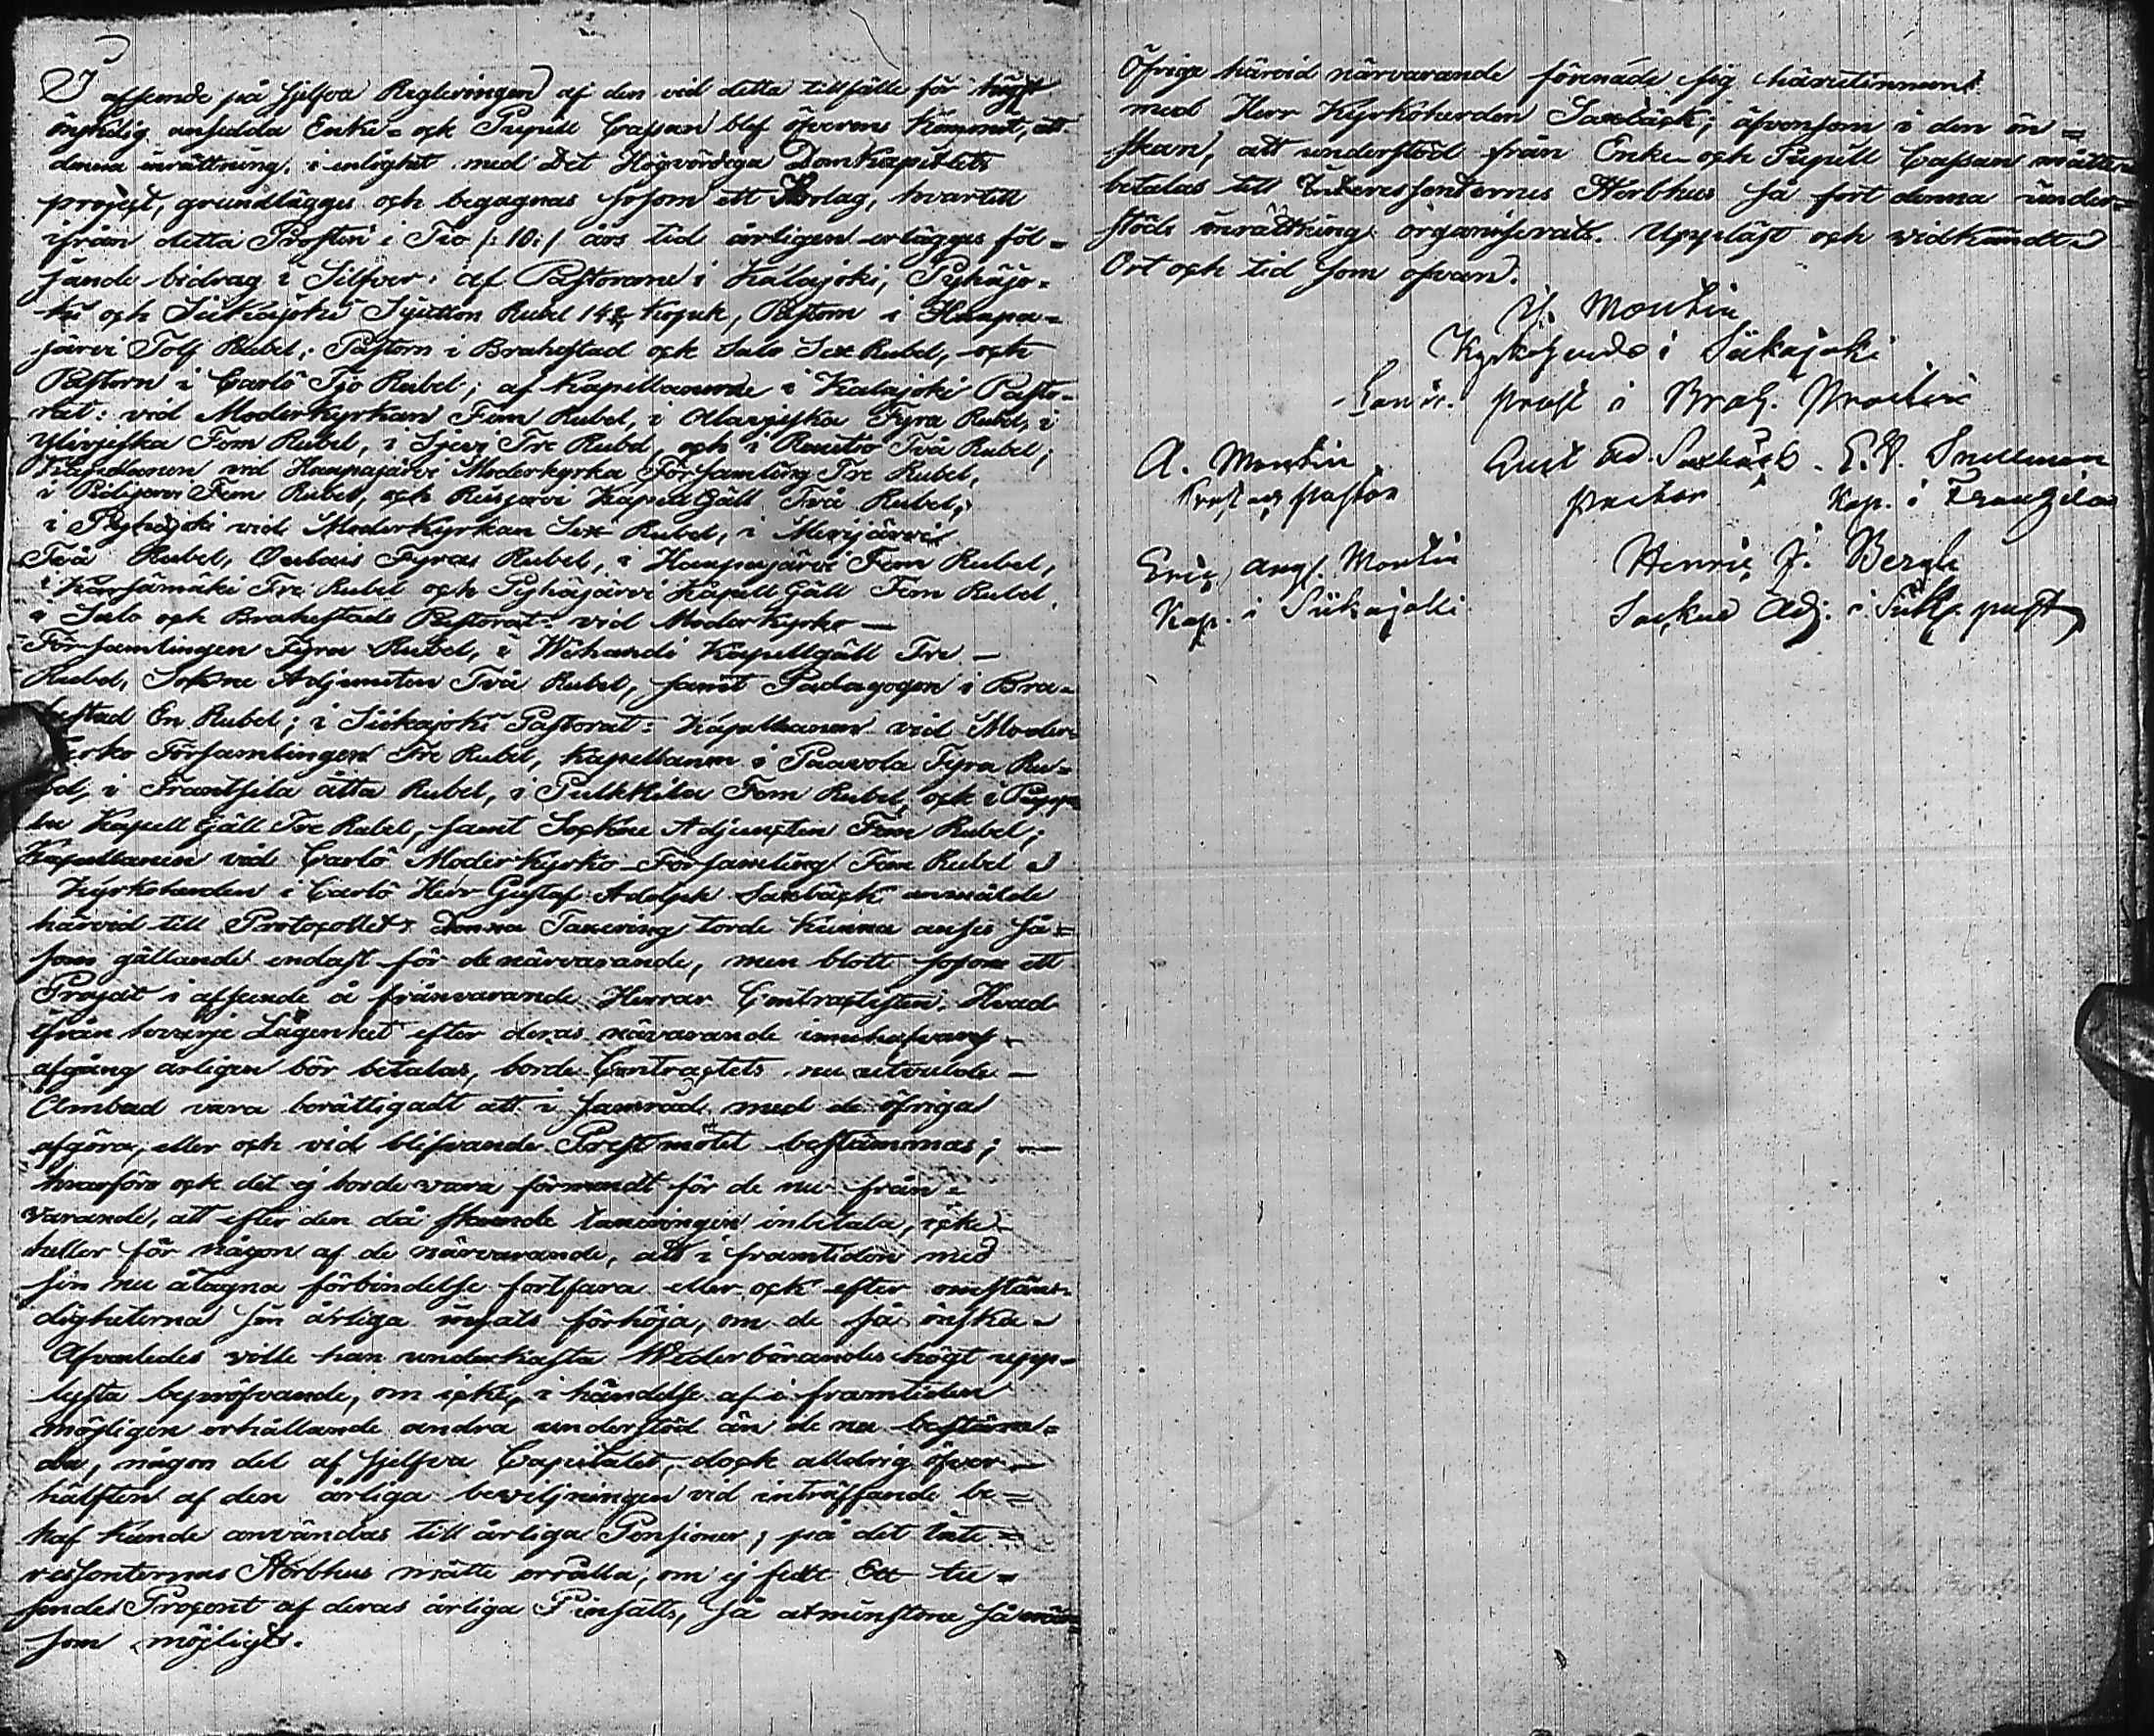 I afseende på sjelfva Regleringen af den vid detta tillfälle för högst
önsklig ansedda Enke- och Pupill Cassan blef öfverens kommit, att
denna inrättning, i enlighet med Det Högvördiga DomKapitlets
project, grundlägges och begagnas såsom ett Bolag, hvartill
ifrån detta Prosteri i Tio /:10:/ års tid årligen erlägges föl=
jande bidrag i Silfver: af Pastorerne i Kalajoki, Pyhäjo=
ki och Siikajoki Sjutton Rubel 14 Kopek, Pastorn i Haapa=
järvi Tolf Rubel; Pastorn i Brahestad och Salo Sex Rubel, och
Pastorn i Carlö Tjo Rubel; af Kapellanerne i Kalajoki Pasto-
rat: vid Moderkyrkan Fem Rubel, i Alavjeska Fyra Rubel, i
Ylivjeska Fem Rubel, i Sjevi Tre Rubel och i Rautio Två Rubel;
Kapellanen vid Haapajärvi Moderkyrka Församling Tre Rubel,
i Pidisjärvi Fem Rubel, och Reisjärvi Kapell Gäll Två Rubel;
i Pyhäjoki vid ModerKyrkan Sex Rubel, i Merijärvi
Två Rubel, Oulais Fyra Rubel, i Haapajärvi Fem Rubel,
i Kärsämäki Tre Rubel och Pyhäjärvi Kapell Gäll Fem Rubel.
i Salo och Brahestads Pastorat: vid ModerKyrko-
Församlingen Fyra Rubel, i Wihandi Kapellgäll Tre -
Rubel, Sokne Adjuncten Två Rubel, samt Pædagogen i Bra=
hestad En Rubel; i Siikajoki Pastorat: Kapellanen vid Moder=
kyrko Församlingen Tre Rubel, Kapellanen i Paavola Fyra Ru=
bel, i Frantsila åtta Rubel, i Pulkkila Fem Rubel, och i Pippo
la Kapell Gäll Tre Rubel, samt Sockne Adjuncten Fem Rubel;
Kapellanen vid Carlö ModerKyrko-Församling Fem Rubel.
Kyrkoherden i Carlö Herr Gustaf Adolph Saxbäck anmälde
härvid till Protocollet: Denna Taxering torde kunna anses så=
som gällande endast för de närvarande, men blott såsom ett
Project i afseende å frånvarande Herrar Contractister. Hvad
ifrån hvarje Lägenhet efter deras nuvarande innehafvares
afgång årligen bör betalas, borde Contractets nu utvalde -
Ombud vara berättigadt att i samråd med de öfriga
afgöra, eller och vid blifvande Prestmötet bestämmas; -
hvarföre och det ej borde vara förmendt för de nu från=
varande, att efter den då skeende taxeringen inbetala, icke
heller för någon af de närvarande, att i framtiden med
sin nu åtagna förbindelse fortfara eller och efter omstän=
digheterna sin årliga insats förhöja, om de så önska.
Äfvenledes ville han underkasta Wederbörandes högt upp=
lysta bepröfvande, om icke, i händelse af i framtiden
möjligen erhållande andra understöd än de nu bestäm=
da, någon del af sjelfva Capitalet, dock alldrig öfver -
hälften af den årliga beviljningen vid inträffande be=
hof kunde användas till årliga Pensioner; på det Inte=
ressenternas Sterbhus måtte erhålla, om ej fullt Ett tu=
sende Procent af deras årliga insats, så åtminstone så nära
som möjligt.
Öfrige härvid närvarande förenade sig härutinnan
med Herr Kyrkoherden Saxbäck; äfvensom i den ön=
skan, att understöd från Enke- och Pupill Cassan måtte
betalas till Interessenternes Sterbhus så fort denna under=
stöds inrättning organiserats. Uppläst och vidkändt
Ort och tid som ofvan.
Montin
Kyrkoherde i Siikajoki
prost i Brah. Prosteri
A. Montin Gust Ad. Saxbäck. E. V. Snellman
Prost och pastor pastor Kap. i Frantzila
Eric Aug. Montin Henric J. Bergh
Kap. i Siikajoki Sockne Adj. i Siik. past